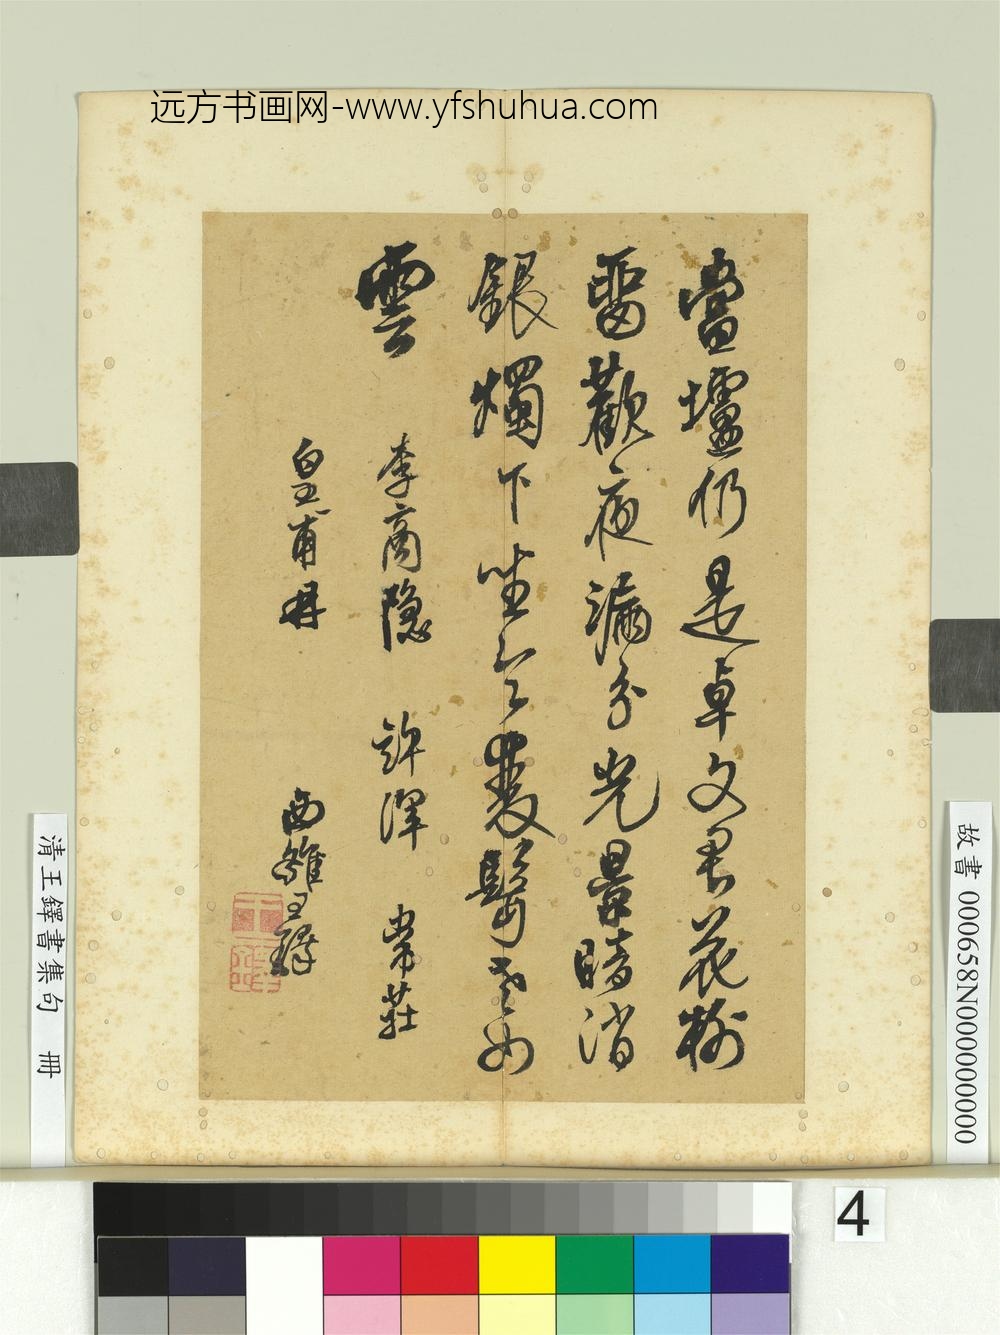 远方书画网-www.yfshuhua.com
當壚仍是卓文君花樹
畱歡夜漏分光景暗消
銀燭下坐雙如
雲 李商隱 許渾 韋莊
皇甫冉 西雒王鐸
故書 000658N000000000
清王鐸書集句 冊
4